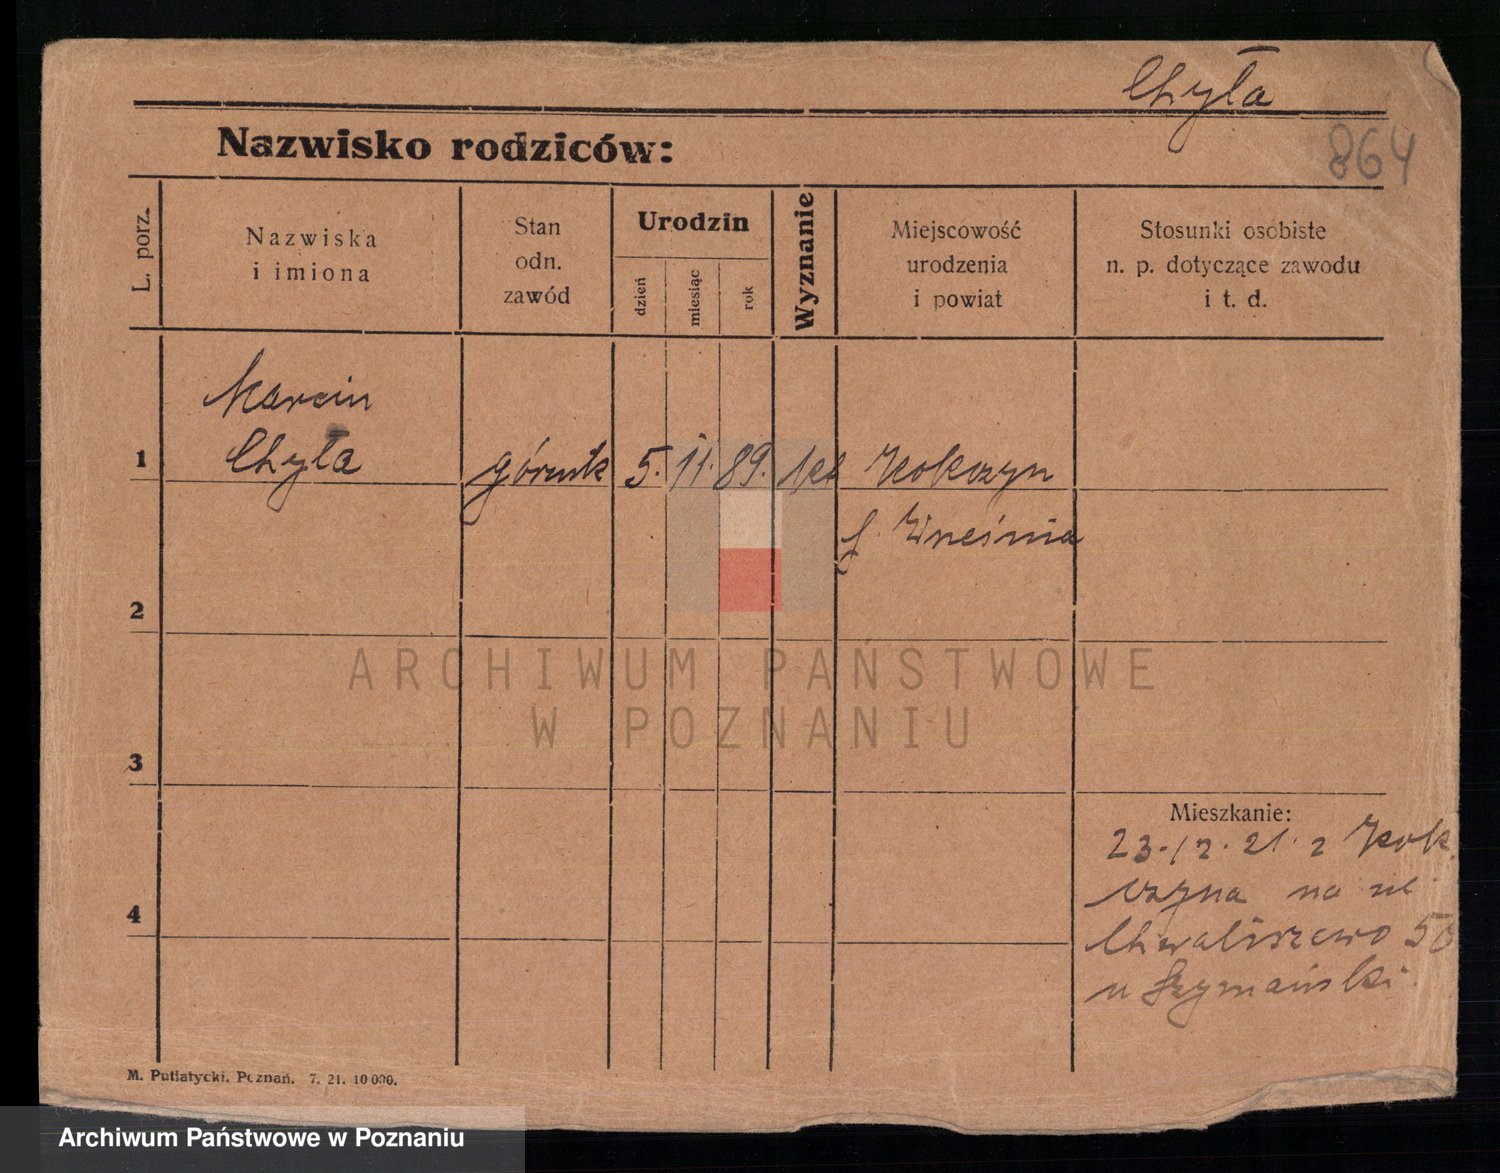 Chyła
Nazwisko rodziców:
864
L. porz.
Nazwiska
i imiona
Stan
odn.
zawód
Urodzin
dzień
miesiąc
rok
Wyznanie
Miejscowość
urodzenia
i powiat
Stosunki osobiste
n. p. dotyczące zawodu
i t. d.
Marcin
1 Chyła górnik 5. 11. 89. kt Kokczyn
Września
2
3
Mieszkanie:
23.12.21. z Kok
czyna na ul.
4
Chwaliszewo 58
u Szymański
M. Putiatycki. Poznań. 7. 21. 10 000.
ARCHIWUM PAŃSTWOWE
W POZNANIU
Archiwum Państwowe w Poznaniu